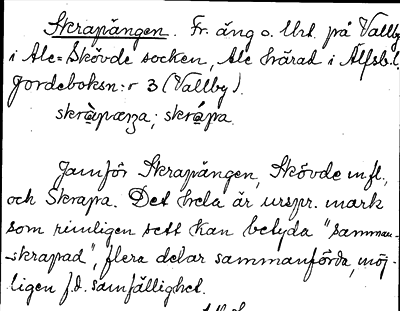 Skrapängen. Fr. äng o. Urt. på Vallby
i Ale-Skövde socken, Ale härad i Älfsb. l.
Jordeboksn:r 3 (Vallby).
skràpæŋa; skrápa.
Jämför Skrapängen, Skövde m fl.,
och Skrapa. Det hela är urspr. mark
som rimligen sett kan betyda "samman-
-skrapad", flera delar sammanförda, möj-
ligen f.d. samfällighet.